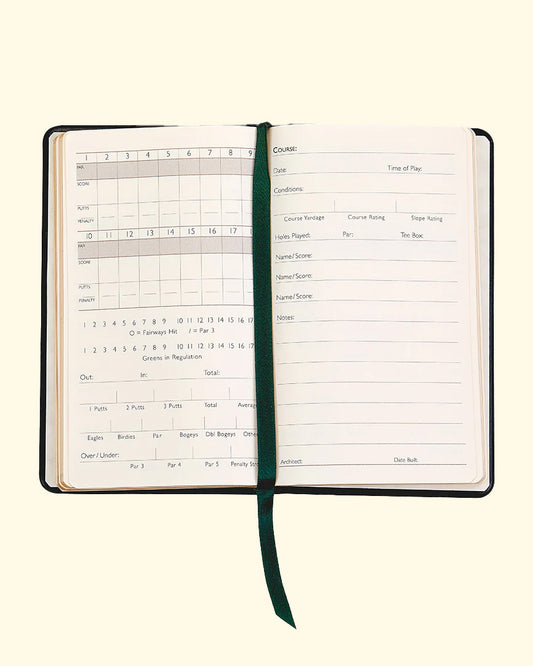 1 2 3 4 5 6 7 8 9
PAR
SCORE
PUTTS
PENALTY
10 11 12 13 14 15 16 17
PAR
SCORE
PUTTS
PENALTY
1 2 3 4 5 6 7 8 9 10 11 12 13 14 15 16 17
O = Fairways Hit / = Par 3
1 2 3 4 5 6 7 8 9 10 11 12 13 14 15 16 17
Greens in Regulation
Out: In: Total:
1 Putts 2 Putts 3 Putts Total Average
Eagles Birdies Par Bogeys Dbl Bogeys Othe
Over / Under:
Par 3 Par 4 Par 5 Penalty Str
COURSE:
Date: Time of Play:
Conditions:
Course Yardage Course Rating Slope Rating
Holes Played: Par: Tee Box:
Name/Score:
Name/Score:
Name/Score:
Notes:
Architect: Date Built: